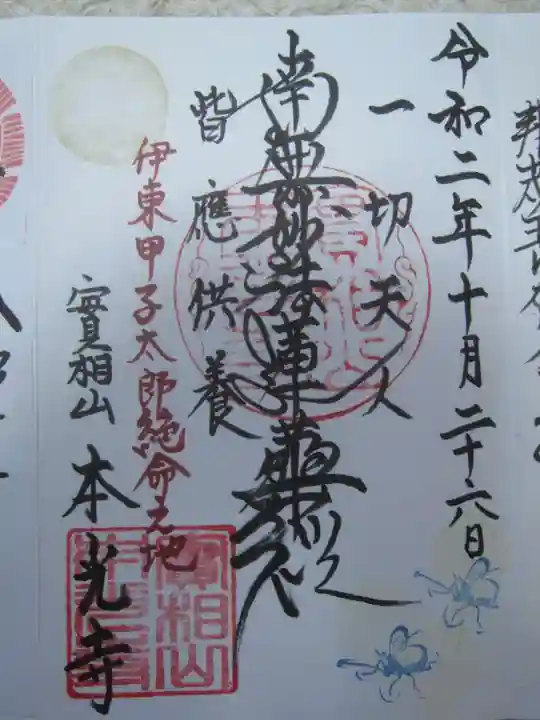 令和二年十月二十六日
一切天人
南無妙法蓮華経
皆應供養
伊東甲子太郎絶命之地
實相山
本光寺